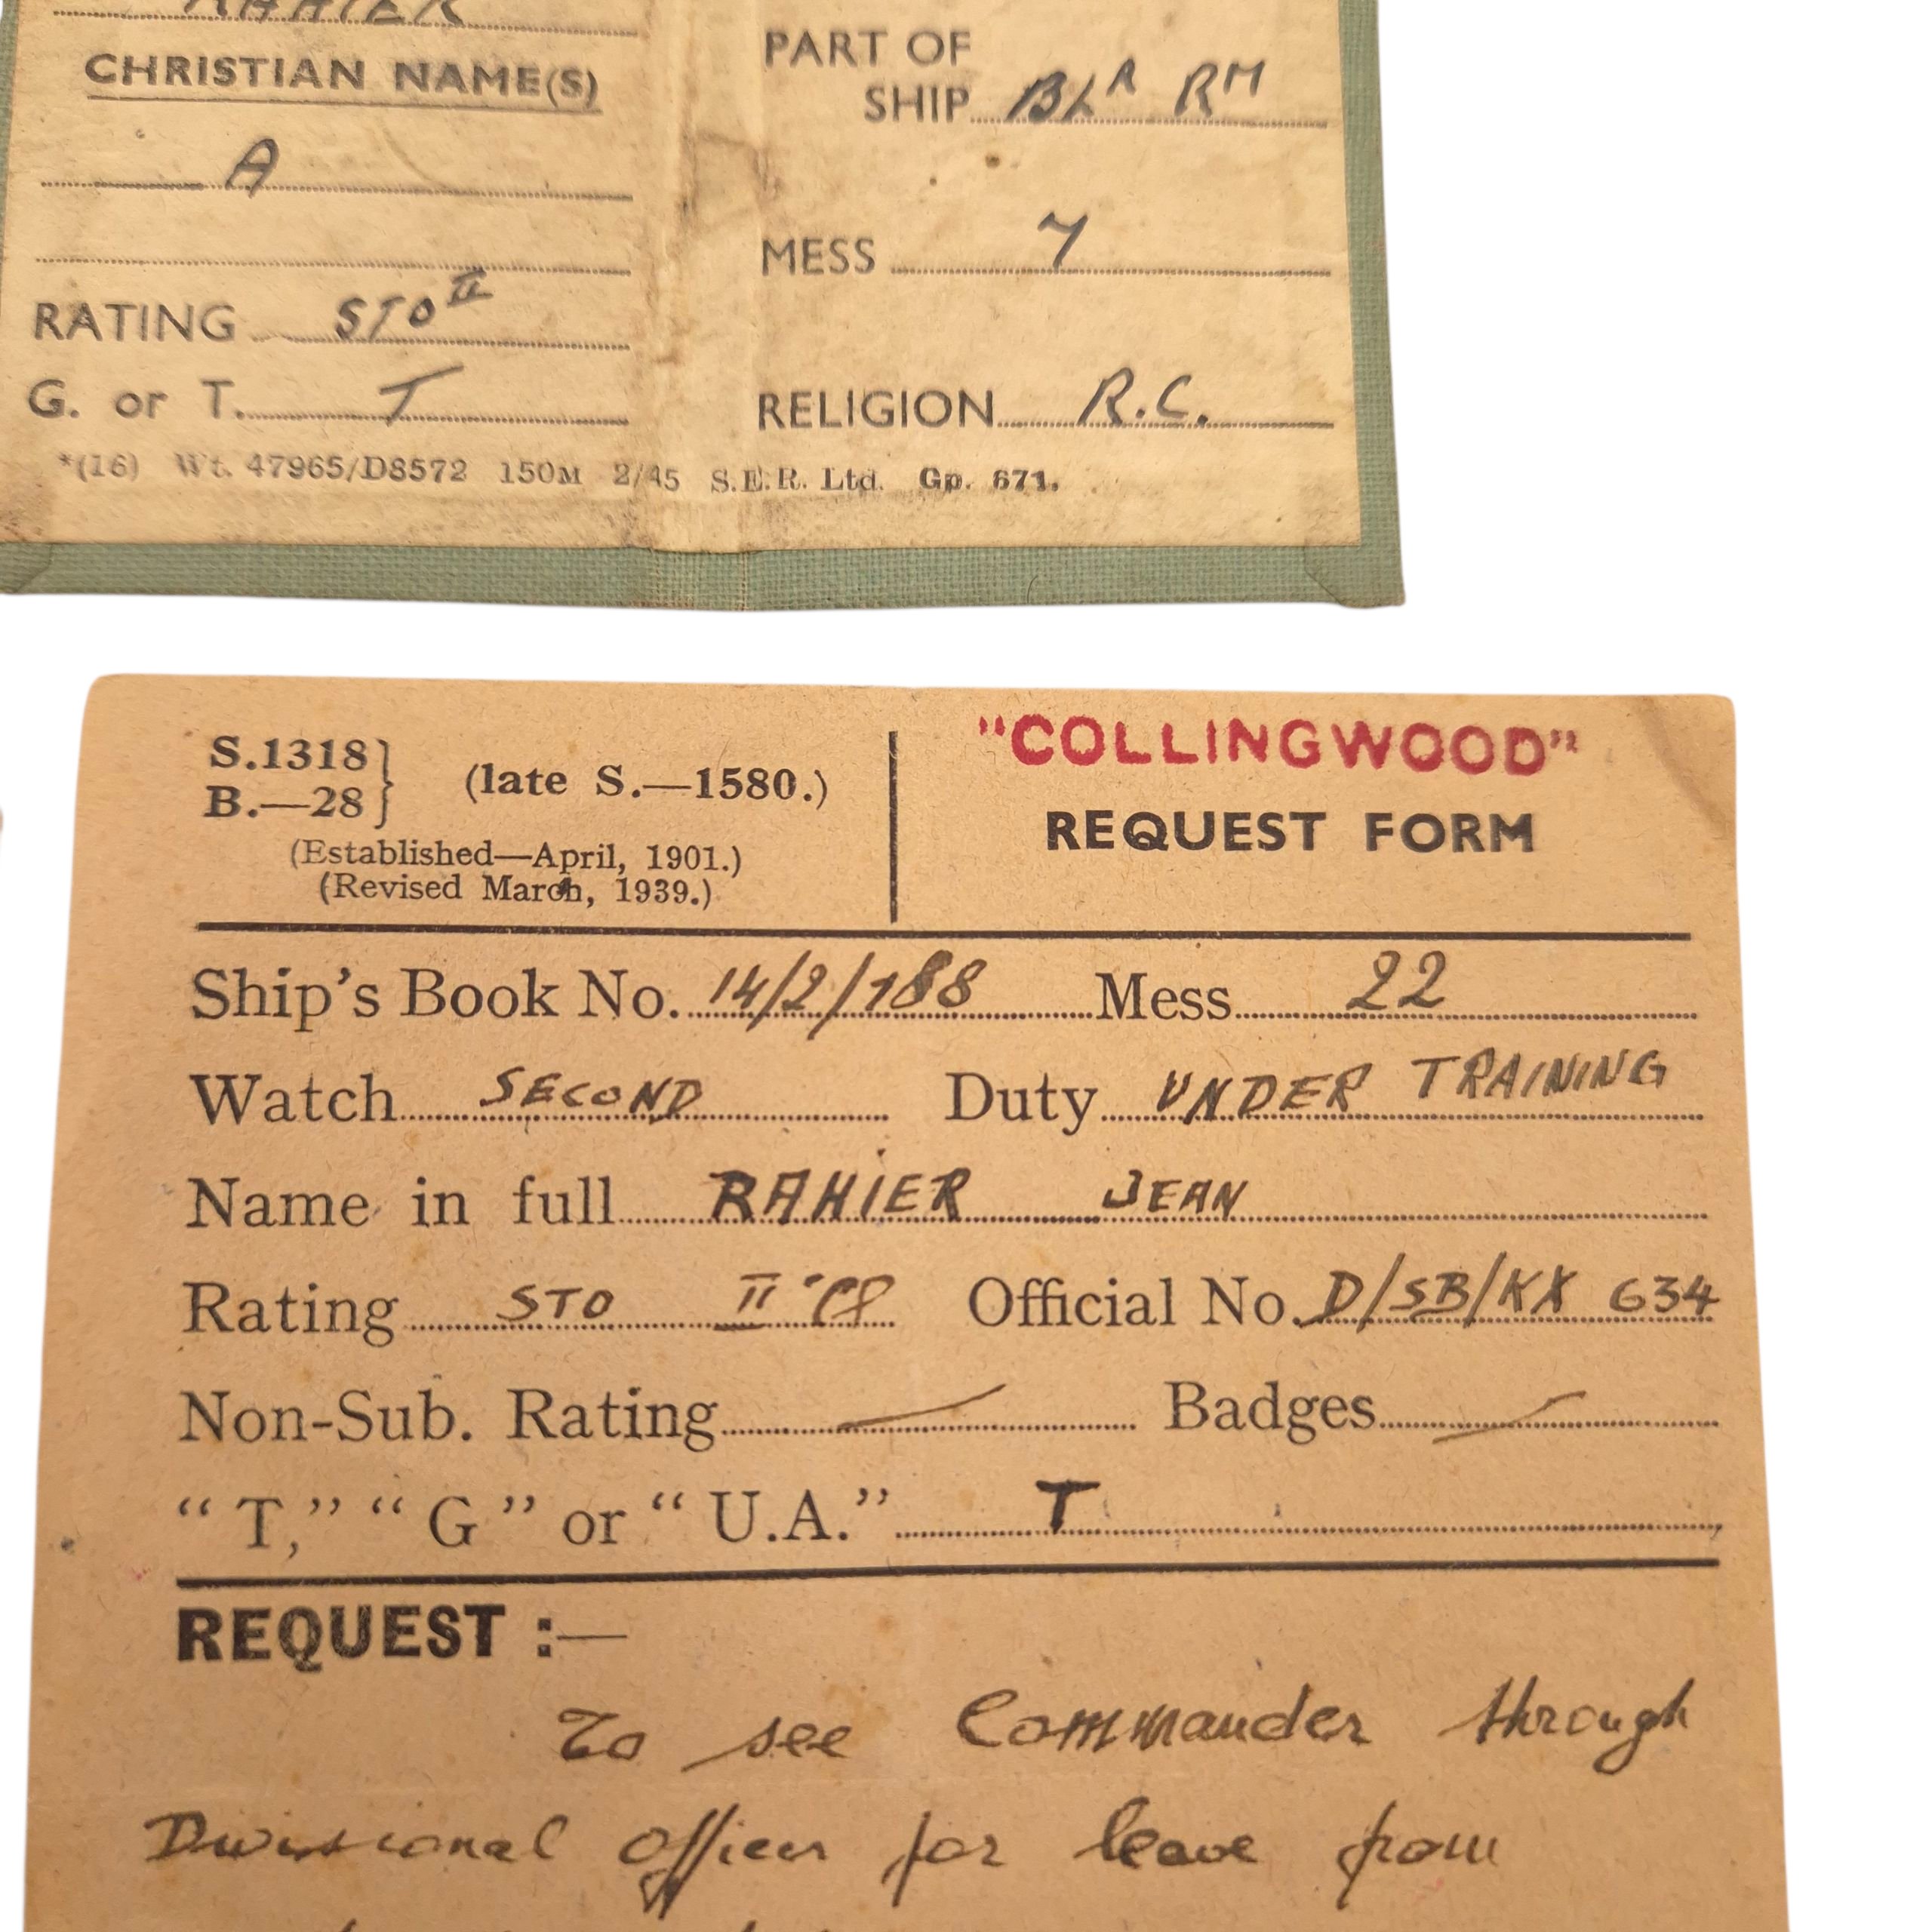 RAHIER
CHRISTIAN NAME(S)
A
RATING STO II
G. or T. T
PART OF
SHIP BLR RM
MESS 7
RELIGION R.C.
*(16) Wt. 47965/D8572 150M 2/45 S.E.R. Ltd. Gp. 671.
S.1318
B.—28
(late S.—1580.)
(Established—April, 1901.)
(Revised March, 1939.)
"COLLINGWOOD"
REQUEST FORM
Ship's Book No. 14/2/188 Mess 22
Watch SECOND Duty UNDER TRAINING
Name in full RAHIER JEAN
Rating STO II Official No. D/SB/KX 634
Non-Sub. Rating — Badges —
"T," "G" or "U.A." T
REQUEST :—
To see Commander through
Divisional officer for leave from